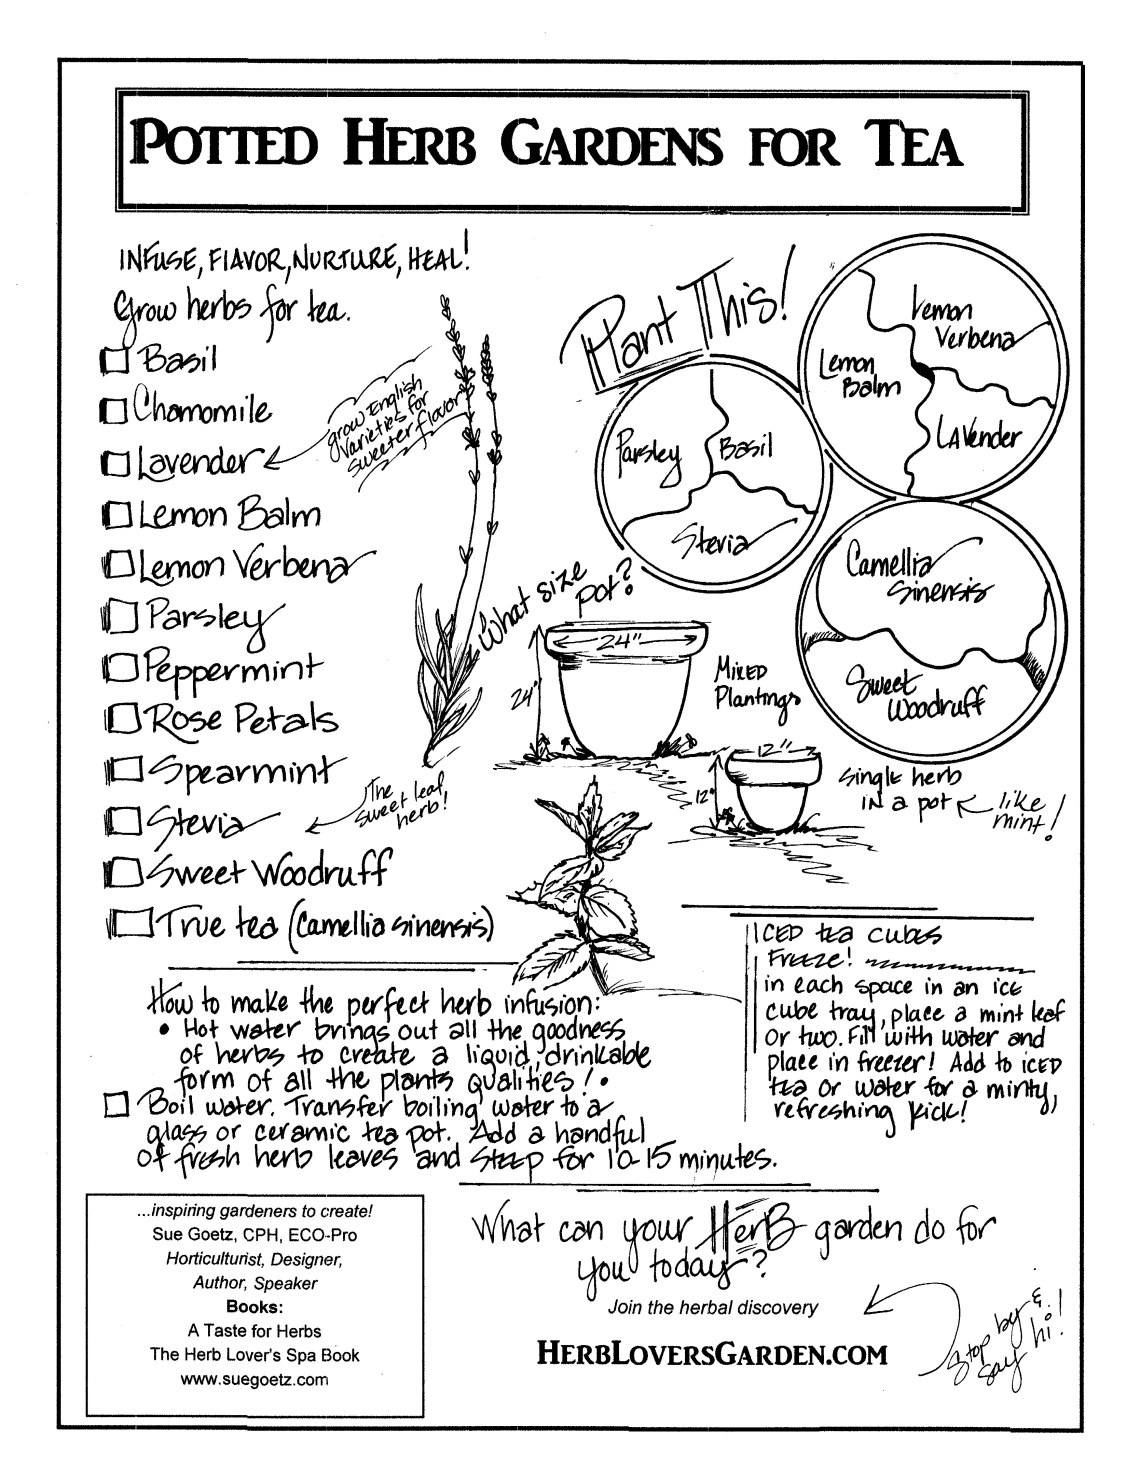 POTTED HERB GARDENS FOR TEA
INFUSE, FLAVOR, NURTURE, HEAL!
Grow herbs for tea.
Basil
Chamomile
Lavender
grow English
Varieties for
sweeter flavor
Lemon Balm
Lemon Verbena
Parsley
Peppermint
Rose Petals
Spearmint
Stevia
The
sweet leaf
herb!
Sweet Woodruff
True tea (Camellia sinensis)
Plant This!
Parsley
Basil
Stevia
Lemon
Verbena
Lemon
Balm
LAVender
Camellia
sinensis
Sweet
Woodruff
What size
pot?
24"
24"
MIXED
Plantings
12"
12"
single herb
IN a pot
like
mint!
How to make the perfect herb infusion:
• Hot water brings out all the goodness
of herbs to create a liquid, drinkable
form of all the plants qualities! •
Boil water. Transfer boiling water to a
glass or ceramic tea pot. Add a handful
of fresh herb leaves and steep for 10-15 minutes.
ICED tea cubes
Freeze!
in each space in an ice
cube tray, place a mint leaf
or two. Fill with water and
place in freezer! Add to iced
tea or water for a minty,
refreshing kick!
...inspiring gardeners to create!
Sue Goetz, CPH, ECO-Pro
Horticulturist, Designer,
Author, Speaker
Books:
A Taste for Herbs
The Herb Lover's Spa Book
www.suegoetz.com
What can your HerB garden do for
you today?
Join the herbal discovery
HERBLOVERSGARDEN.COM
Stop by &
say hi!